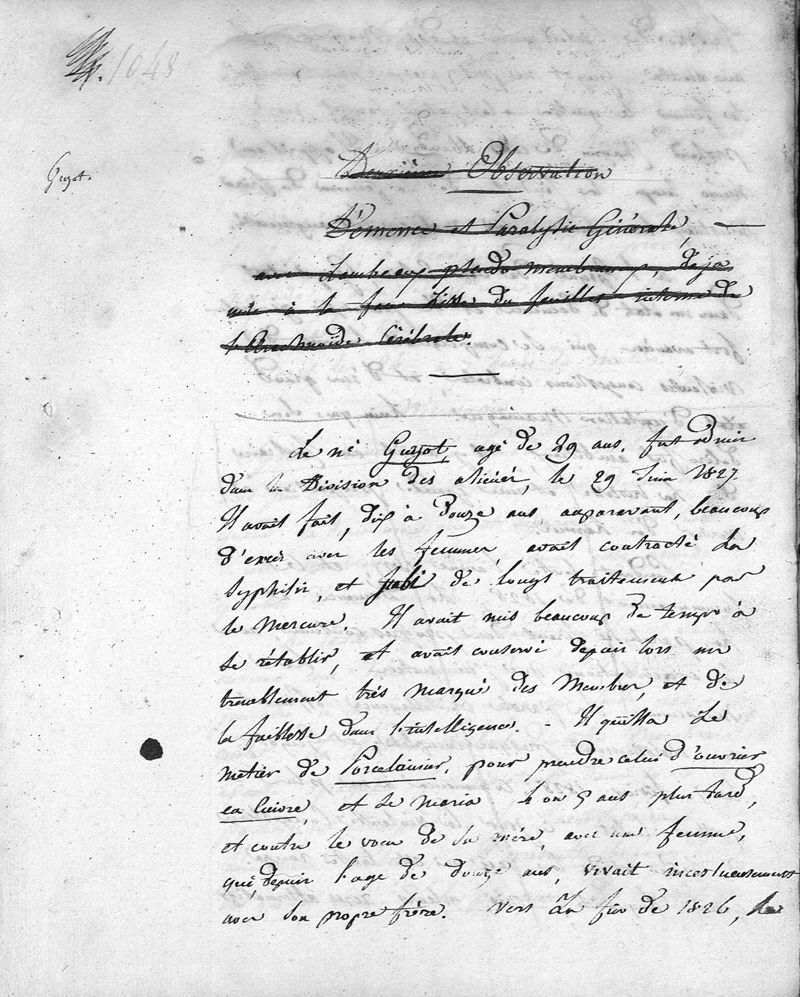 1048
Guzot.
Deuxième Observation
Démence et Paralysie Générale,
avec lambeaux pseudo membraneux, déja
mie à la face libre du feuillet interne de
l'Arachnoïde Cérébrale.
Le né Guzot, agé de 29 ans, fut admis
dans la Division des aliénés, le 29 Juin 1827.
Il avait fait, dix à douze ans auparavant, beaucoup
d'excès avec les femmes, avait contracté la
syphilis, et subi de longs traitements par
le mercure. Il avait mis beaucoup de temps à
se rétablir, et avait conservé depuis lors un
tremblement très marqué des Membres, et de
la faiblesse dans l'intelligence. - Il quitta le
métier de Porcelainier, pour prendre celui d'ouvrier
en Cuivre, et se maria 4 on 5 ans plus tard,
et contre le voeu de sa mère, avec une femme,
qui, depuis l'age de douze ans, vivait incestueusement
avec son propre frère. Vers la fin de 1826,